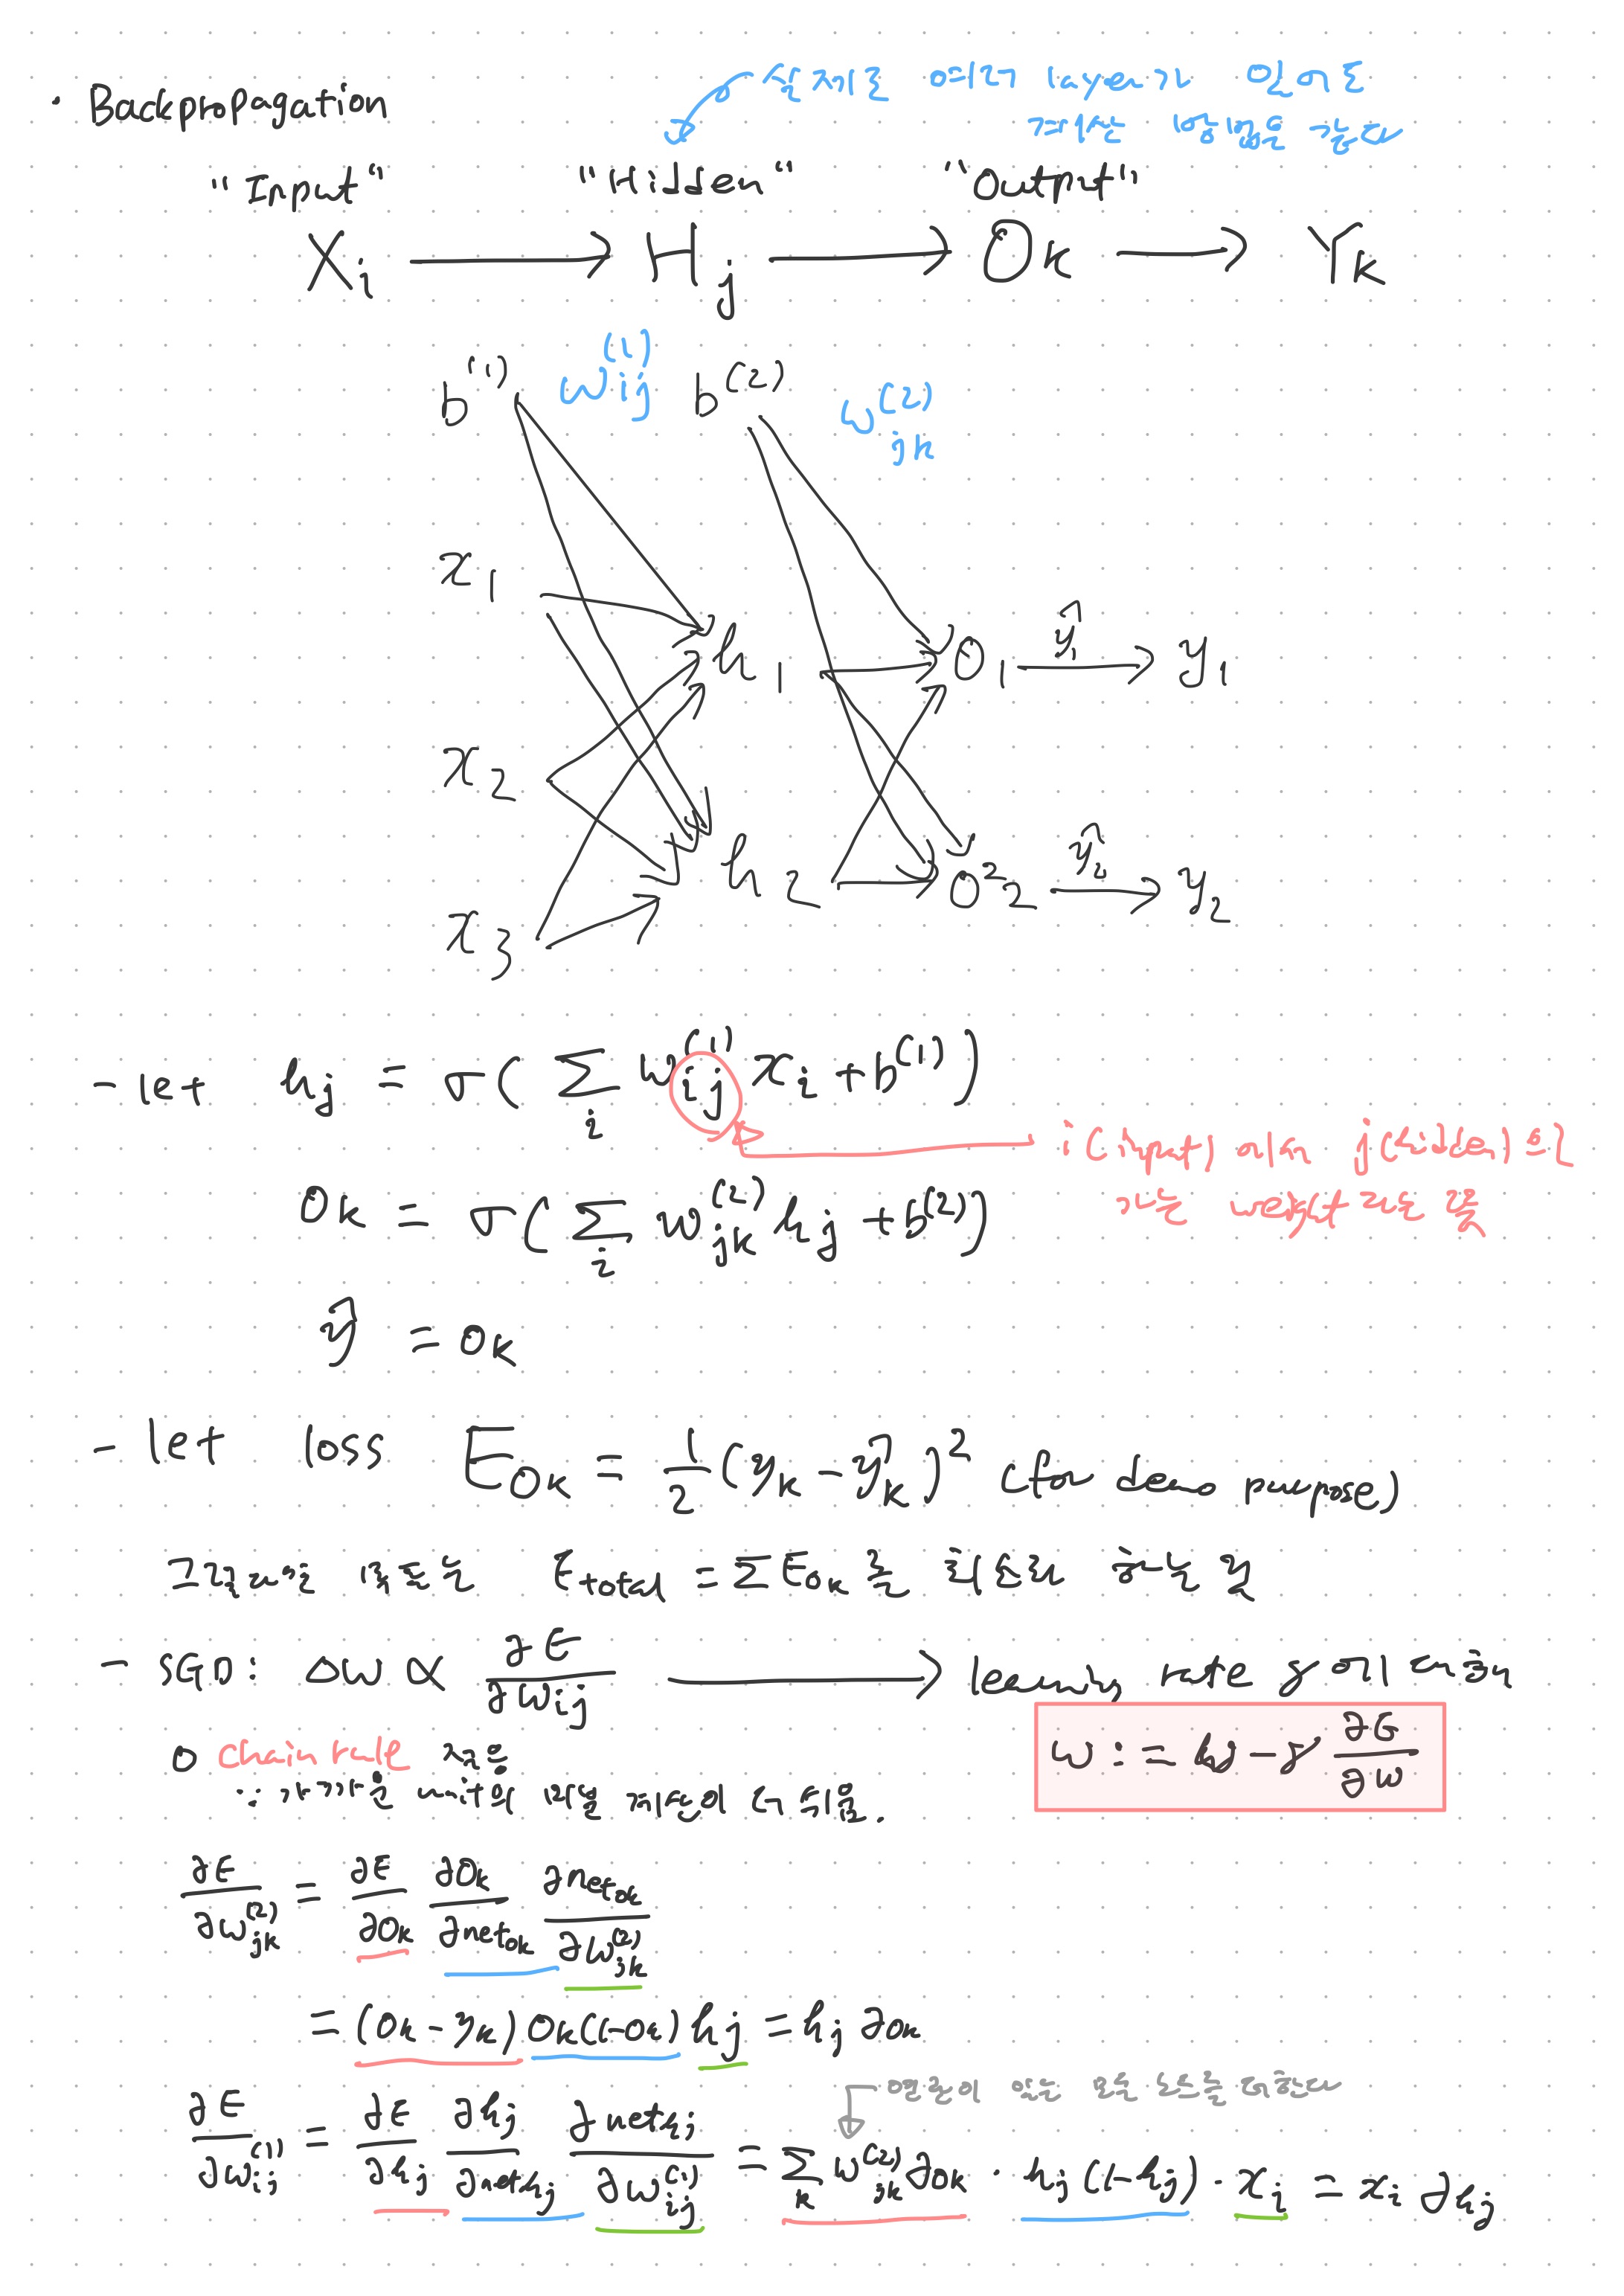 · Backpropagation
실제로 여러 layer가 있어도
계산 방법은 같다
"Input" "Hidden" "Output"
Xᵢ → Hⱼ → Oₖ → Yₖ
b⁽¹⁾ wᵢⱼ⁽¹⁾ b⁽²⁾ wⱼₖ⁽²⁾
x₁
h₁ O₁ ŷ₁ → y₁
x₂
h₂ O²₂ ŷ₂ → y₂
x₃
- let hⱼ = σ( Σᵢ wᵢⱼ⁽¹⁾ xᵢ + b⁽¹⁾ )
i(input)에서 j(hidden)으로
가는 weight 라는 뜻
Oₖ = σ( Σᵢ wⱼₖ⁽²⁾ hⱼ + b⁽²⁾ )
ŷ = oₖ
- let loss E_Oₖ = 1/2 (yₖ - ŷₖ)² (for demo purpose)
목표는 E_total = ΣE_Oₖ 를 최소화 하는 것
- SGD: Δw ∝ ∂E/∂wᵢⱼ → learning rate γ에 대하여
w := w - γ ∂E/∂w
o Chain rule 적용
∵ 가까운 unit의 미분 계산이 더 쉬움.
∂E/∂wⱼₖ⁽²⁾ = ∂E/∂Oₖ ∂Oₖ/∂net_oₖ ∂net_oₖ/∂wⱼₖ⁽²⁾
= (Oₖ - yₖ) Oₖ(1-Oₖ) hⱼ = hⱼ ∂oₖ
연관이 있는 모든 노드를 더한다
∂E/∂wᵢⱼ⁽¹⁾ = ∂E/∂hⱼ ∂hⱼ/∂net_hⱼ ∂net_hⱼ/∂wᵢⱼ⁽¹⁾ = Σₖ wⱼₖ⁽²⁾ ∂oₖ · hⱼ(1-hⱼ) · xᵢ = xᵢ ∂hⱼ